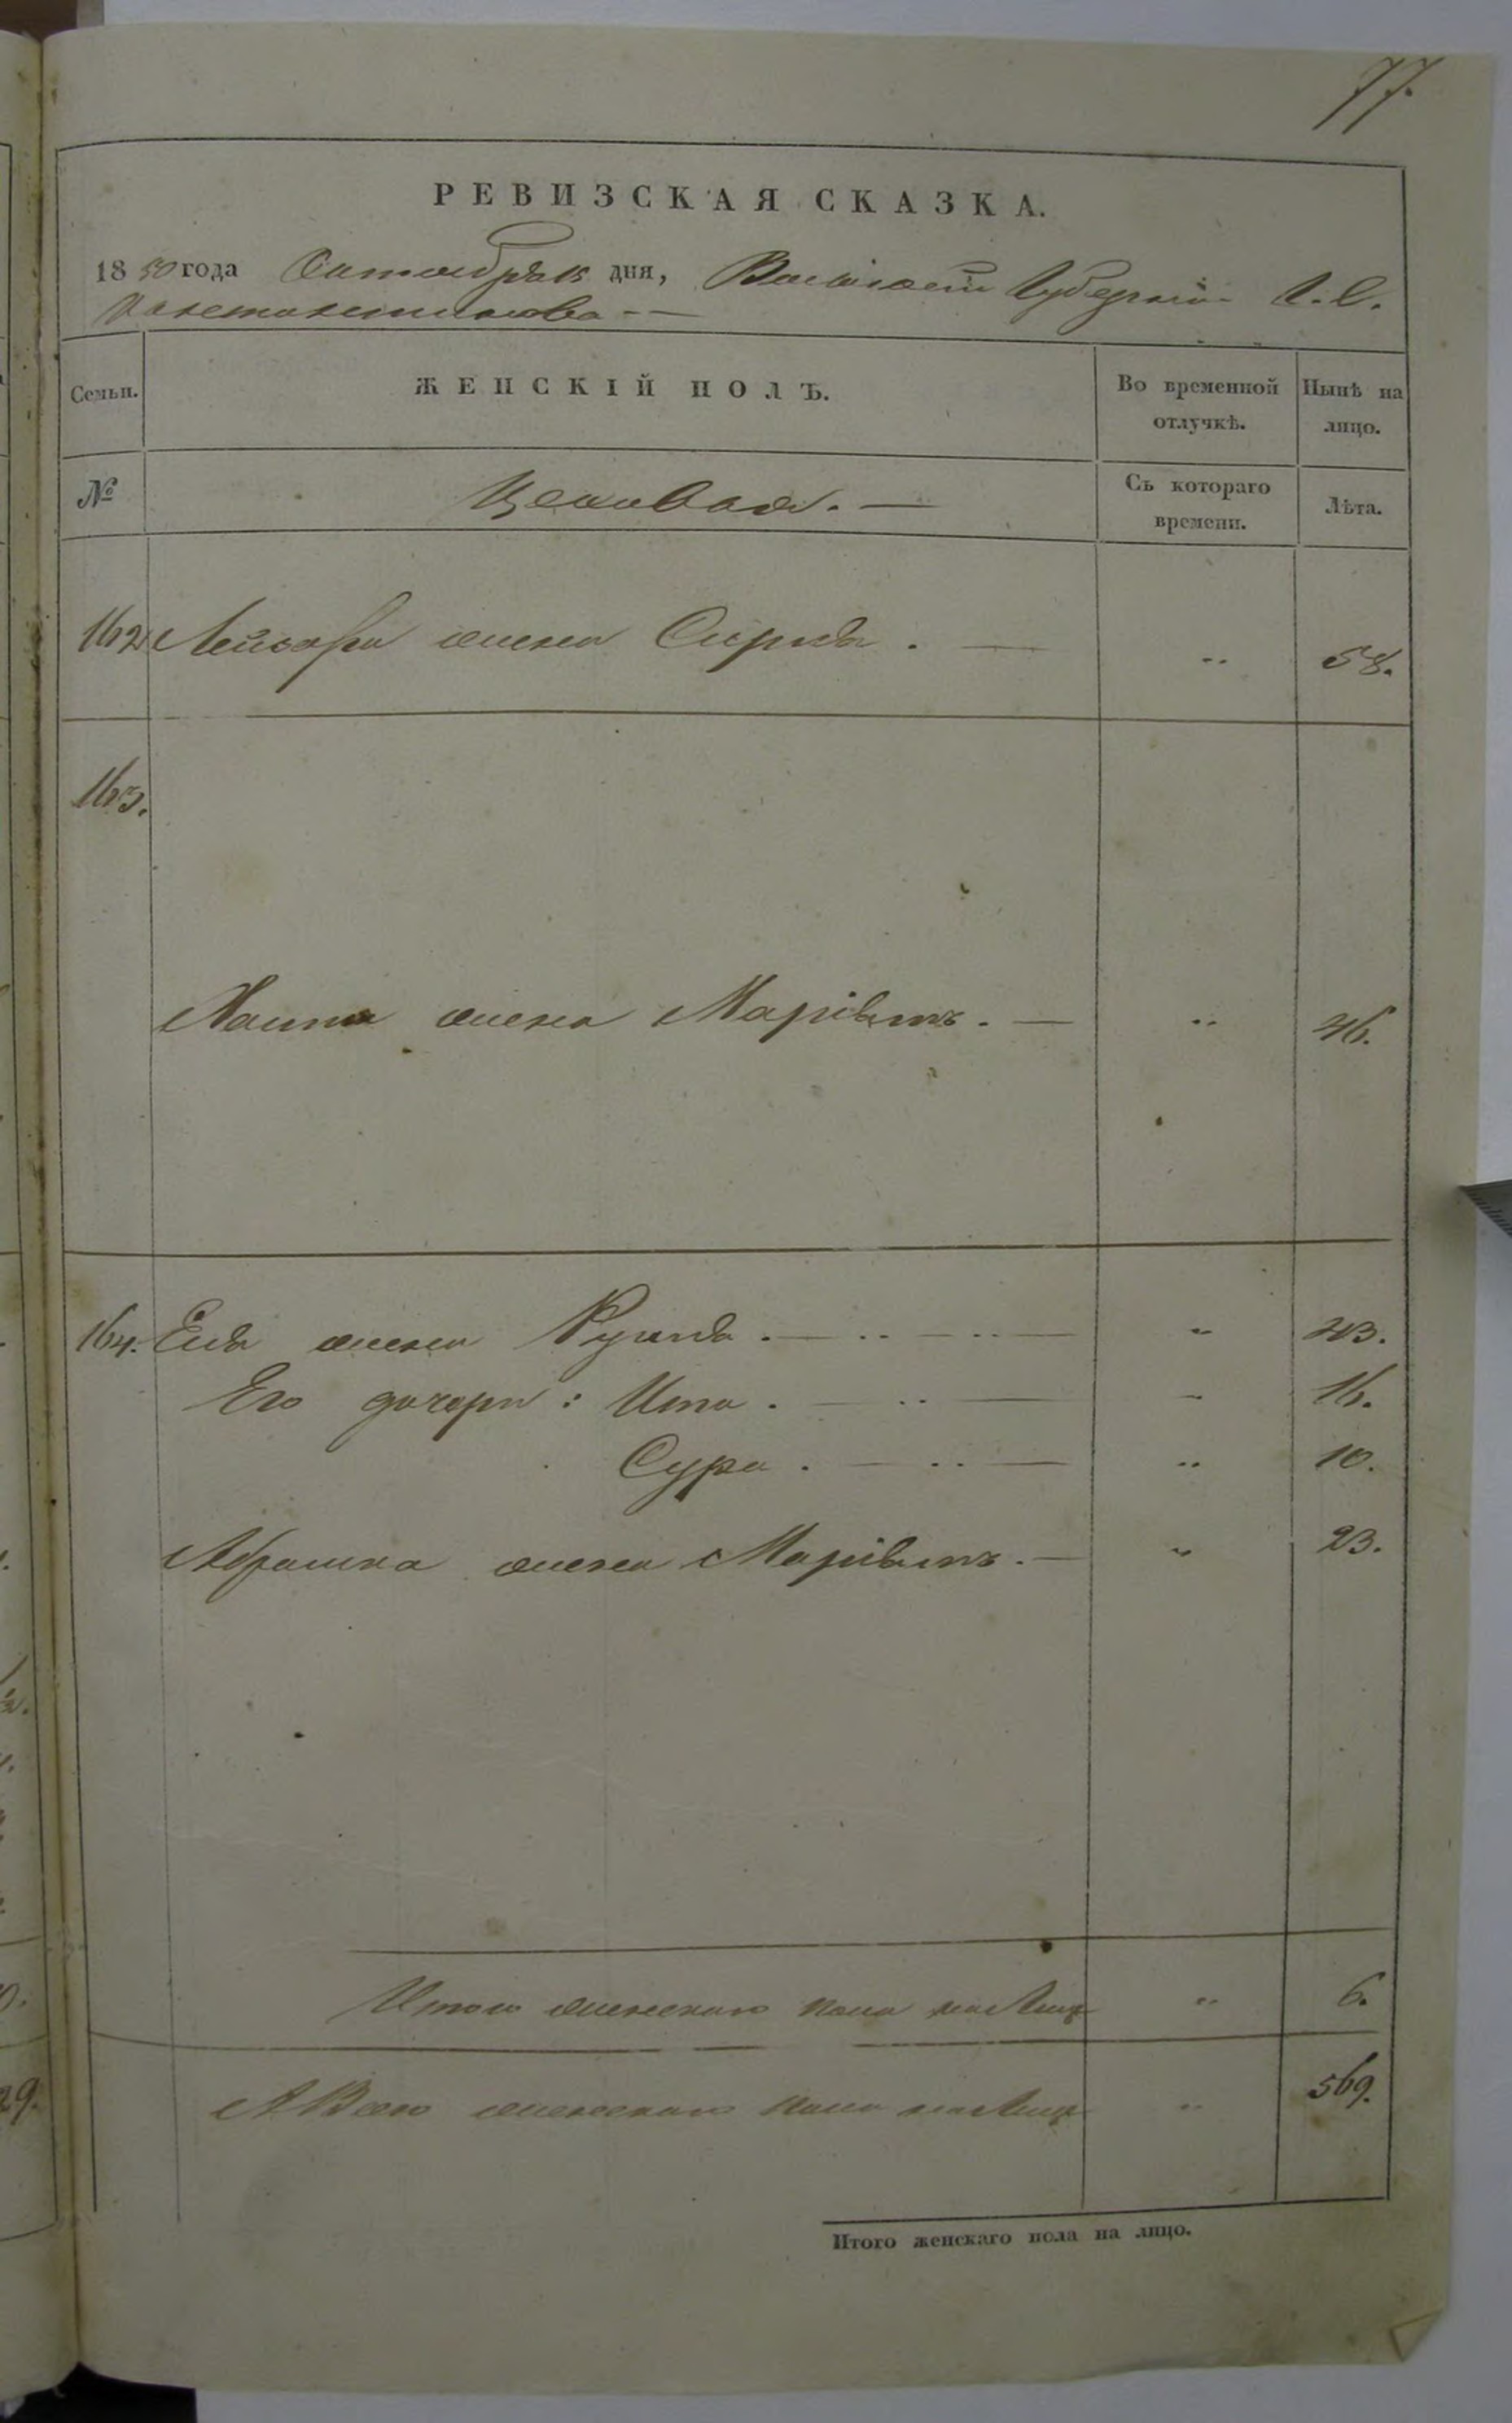 77.
РЕВИЗСКАЯ СКАЗКА.
1850 года Октября дня, Волынской Губернии
Староконстантинова
Семьи. ЖЕНСКІЙ ПОЛЪ. Во временной отлучкѣ. Нынѣ на лицо.
№ Съ котораго времени. Лѣта.
162 Лейзора жена Сирка. — „ 58.
163.
Хаима жена Маріямъ. — „ 46.
164. жена — „ 43.
Его дочери: Ита. — „ 16.
Сура. — „ 10.
Абрамка жена Маріямъ. — „ 23.
Итого женскаго пола на лицо „ 6.
А Всего женскаго пола на лицо „ 569.
Итого женскаго пола на лицо.